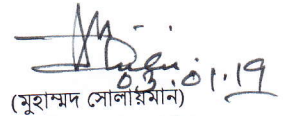 03.01.19
(মুহাম্মদ সোলায়মান)